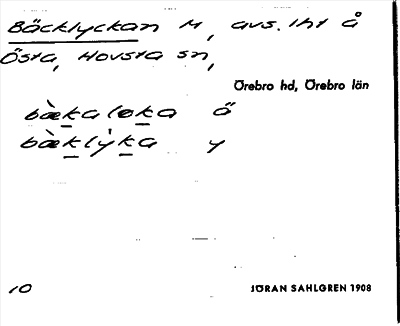 Bäcklyckan M, avs. lht å
Östa, Hovsta sn,
Örebro hd, Örebro län
bæ̀kaløka ö
bæ̀klỳka y
10
JÖRAN SAHLGREN 1908